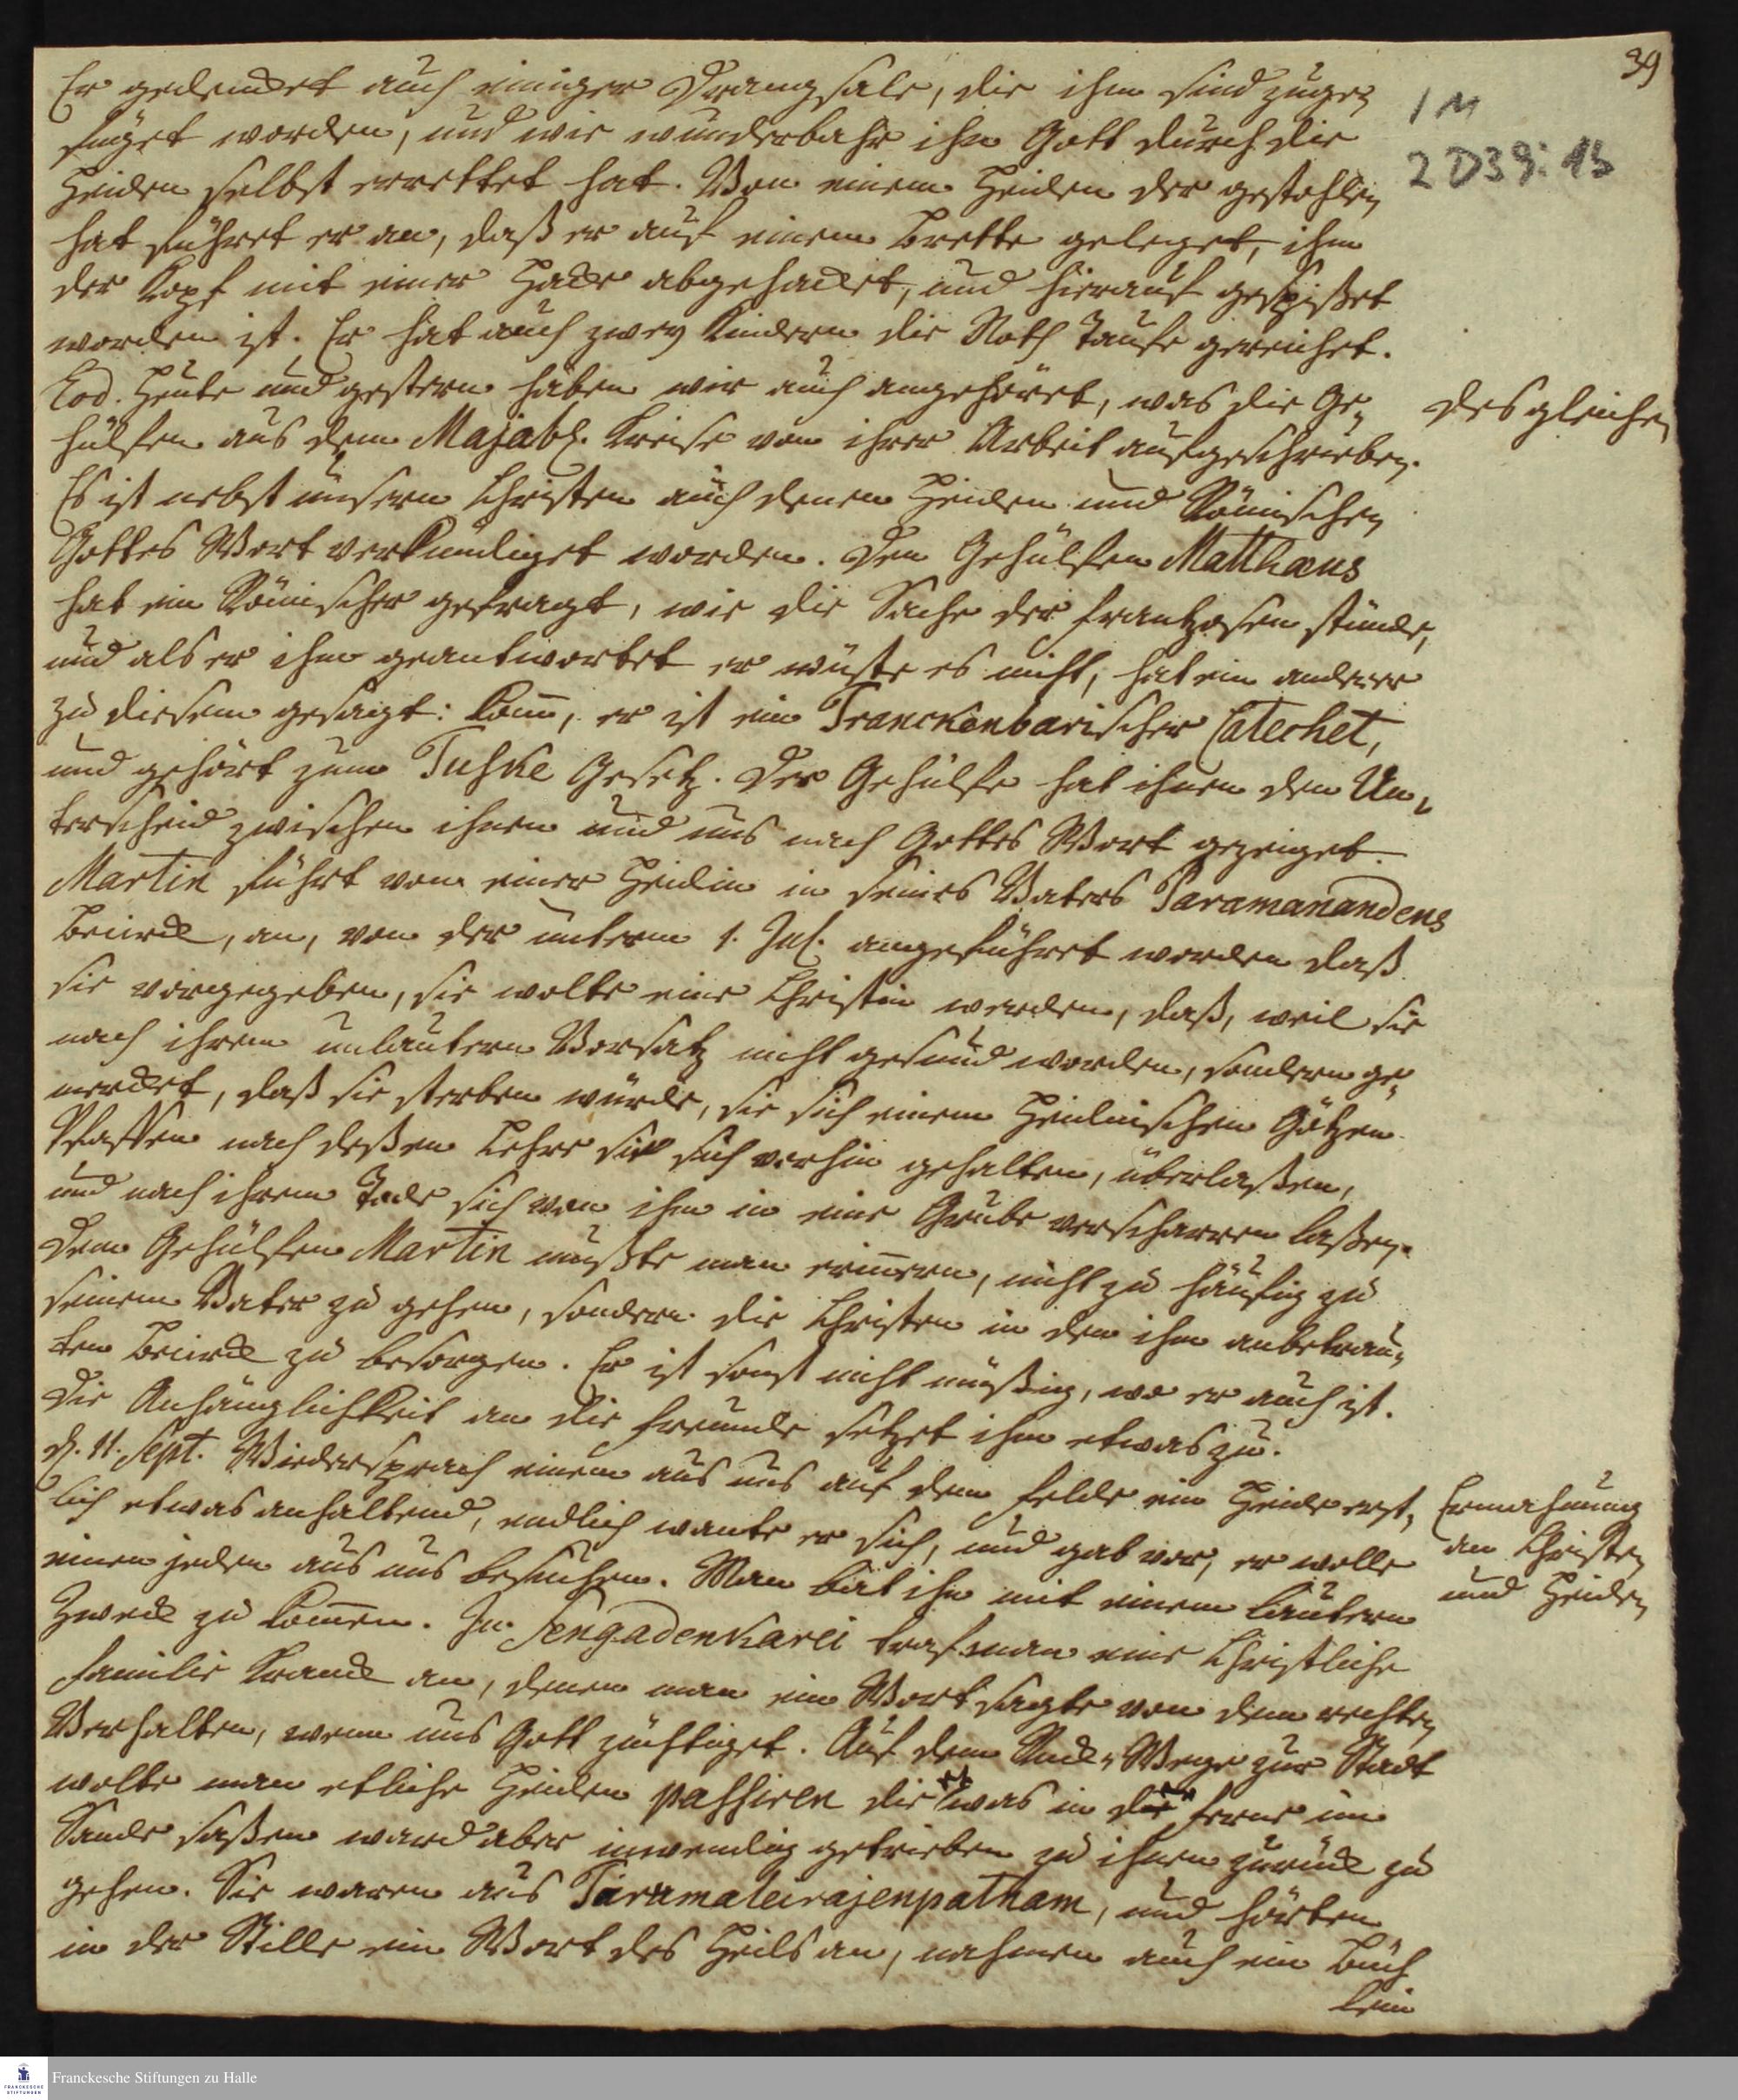 39
1 M
2 D39: 15
Er gedencket auch einiger Drangsale, die ihm sind zuge=
füget worden, und wie wunderbahr ihn Gott durch die
Heiden selbst errettet hat. Von einem Heiden der gestohlen
hat führet er an, daß er auf einem Brette geleget, ihm
der Kopf mit einer Hacke abgehacket, und hierauf gespißet
worden ist. Er hat auch zwey Kindern die Noth Taufe gereichet.
Eod. Heute und gestern haben wir auch angehöret, was die Ge=
hülfen aus dem Majab. Kreise von ihrer Arbeit aufgeschrieben.
desgleichen
Es ist nebst unsern Christen auch denen Heiden und Römischen
Gottes Wort verkündiget worden. Den Gehülfen Matthæus
hat ein Römischer gefragt, wie die Sache der Frantzosen stünde,
und als er ihm geantwortet er wüste es nicht, hat ein anderer
zu diesem gesagt: Kom̄, er ist ein Tranckenbarischer Catechet,
und gehört zum Gesetz. Der Gehülfe hat ihnen den Un=
terscheid zwischen ihnen und uns nach Gottes Wort gezeiget.
Martin führt von einer Heidin in seines Vaters Paramanandens
Beirck, an, von der unterm 1. Jul. angeführet worden daß
sie vorgegeben, sie wolte eine Christin werden, daß, weil sie
nach ihrem unlautern Vorsatz nicht gesund worden, sondern ge=
mercket, daß sie sterben würde, sie sich einem Heidnischen Götzen
Pfaffen nach deßen Lehre sie sich vorhin gehalten, überlaßen,
und nach ihrem Tode sich von ihm in eine Grube verscharren laßen.
Dem Gehülfen Martin mußte man erin̄ern, nicht zu häufig zu
seinem Vater zu gehen, sondern die Christen in dem ihm anbetrau=
ten Beirck zu besorgen. Er ist sonst nicht müßig, wo er auch ist.
Die Anhänglichkeit an die Freunde setzet ihm etwas zu.
d. 11. Sept. Wiedersprach einem aus uns auf dem Felde ein Heide erst=
lich etwas anhaltend, endlich wante er sich, und gab vor, er wolle
einen jeden aus uns besuchen. Man bat ihn mit einem lautern
Ermahnung
an Christen
und Heiden
Zweck zu kom̄en. In Sengadenkarei traf man eine Christliche
Familie kranck an, denen man ein Wort sagte von dem rechten
Verhalten, wenn uns Gott züchtiget. Auf dem Rück=Wege zur Stadt
wolte man etliche Heiden passiren die etwas in der Ferne im
Sande saßen ward aber inwendig getrieben zu ihnen zurück zu
gehen. Sie waren aus Tirumaleirajenpatnam, und hörten
in der Stille ein Wort des Heils an, nahmen auch ein Büch
lein
Franckesche Stiftungen zu Halle
FRANCKESCHE
STIFTUNGEN